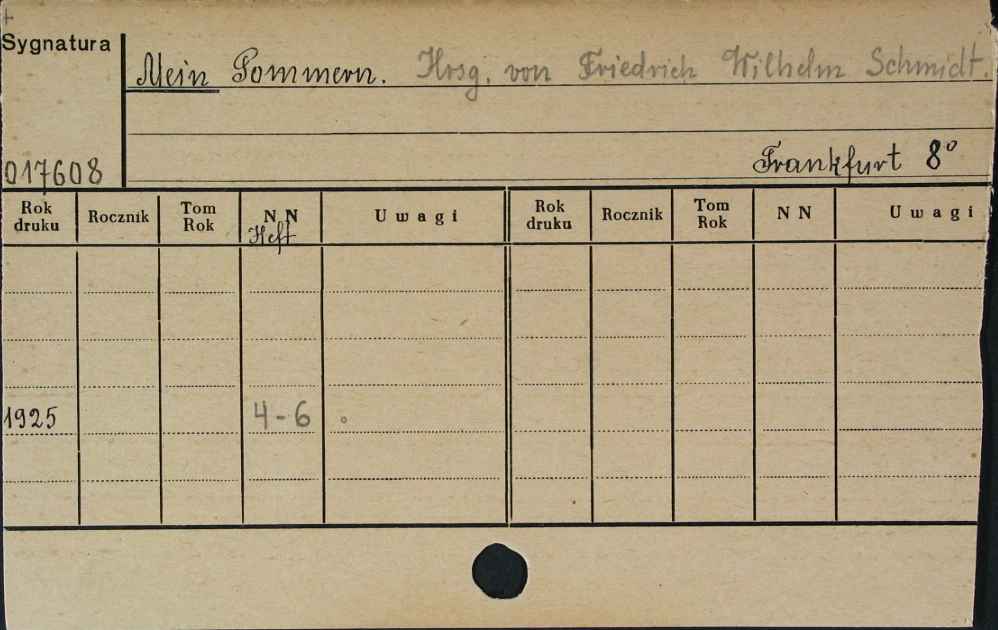 +
Sygnatura
Mein Pommern. Hrsg. von Friedrich Wilhelm Schmidt.
Frankfurt 8°
017608
Rok druku Rocznik Tom Rok NN Heft Uwagi Rok druku Rocznik Tom Rok NN Uwagi
1925 4-6 °